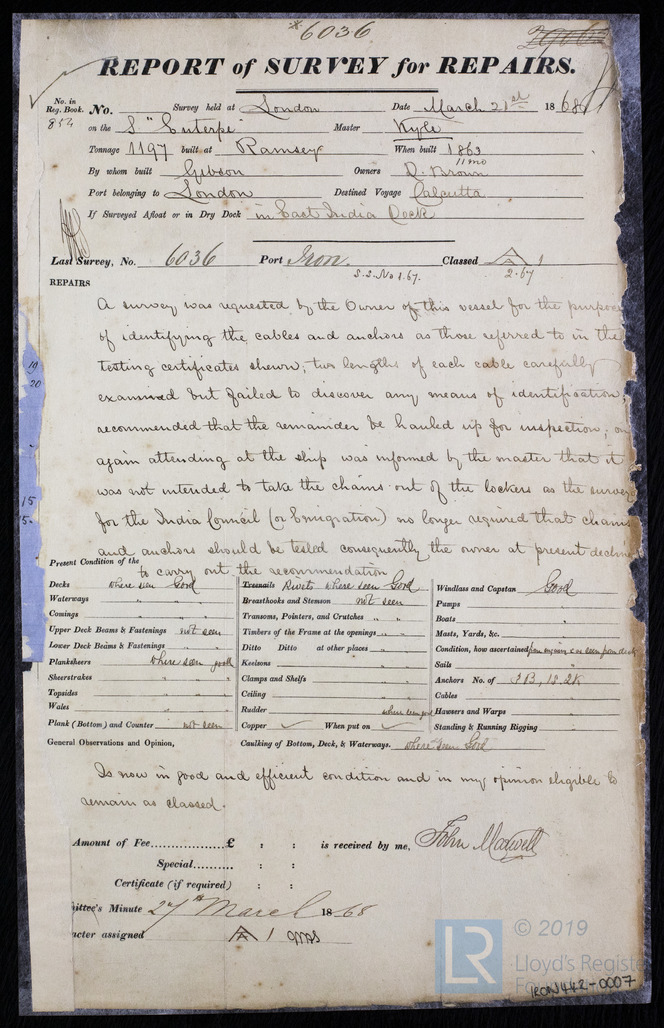 *6036
REPORT of SURVEY for REPAIRS.
No. in Reg. Book. 854 No. Survey held at London Date March 21st 1868
on the S "Euterpe" Master Kyle
Tonnage 1197 built at Ramsey When built 1863 11 mo
By whom built Gibson Owners D. Brown
Port belonging to London Destined Voyage Calcutta
If Surveyed Afloat or in Dry Dock in East India Dock
Last Survey, No. 6036 Port Iron. Classed A 1
S.S. No 1.67. 2.67
REPAIRS
A survey was requested by the Owner of this vessel for the purpose
of identifying the cables and anchors as those referred to in the
testing certificates shewn; two lengths of each cable carefully
examined but failed to discover any means of identification;
recommended that the remainder be hauled up for inspection; on
again attending at the ship was informed by the master that it
was not intended to take the chains out of the lockers as the survey
for the India Council (or Emigration) no longer required that chains
and anchors should be tested consequently the owner at present decline
to carry out the recommendation
Present Condition of the
Decks where seen Good
Waterways " "
Comings " "
Upper Deck Beams & Fastenings not seen
Lower Deck Beams & Fastenings " "
Planksheers where seen good
Sheerstrakes " "
Topsides " "
Wales " "
Plank (Bottom) and Counter not seen
Treenails Rivets where seen Good
Breasthooks and Stemson not seen
Transoms, Pointers, and Crutches " "
Timbers of the Frame at the openings " "
Ditto Ditto at other places " "
Keelsons " "
Clamps and Shelfs " "
Ceiling " "
Rudder where seen good
Copper ✓ When put on ✓
Windlass and Capstan Good
Pumps "
Boats "
Masts, Yards, &c. "
Condition, how ascertained from seen from deck
Sails "
Anchors No. of 3B, 1S, 2K
Cables "
Hawsers and Warps "
Standing & Running Rigging "
General Observations and Opinion, Caulking of Bottom, Deck, & Waterways. where seen Good
Is now in good and efficient condition and in my opinion eligible to
remain as classed.
Amount of Fee............... £ : : is received by me, John Maxwell
Special.......... : :
Certificate (if required) : :
ittee's Minute 27th March 1868
acter assigned A 1
19
20
15
5.
LR © 2019
Lloyd's Register
IRON442-0007